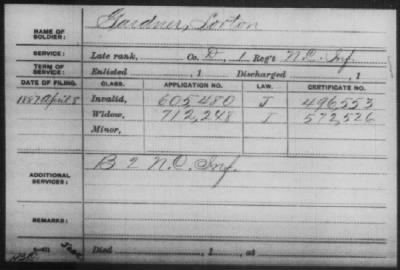 NAME OF SOLDIER: Gardner, Lorton
SERVICE: Late rank, Co. D, 1 Reg't N.C. Inf.
TERM OF SERVICE: Enlisted , 1 Discharged , 1
DATE OF FILING. CLASS. APPLICATION NO. LAW. CERTIFICATE NO.
1887 April 8 Invalid, 605480 J 496553
Widow, 712,248 I 572,526
Minor,
ADDITIONAL SERVICES: B 2 N.C. Inf.
REMARKS:
Died , 1 , at